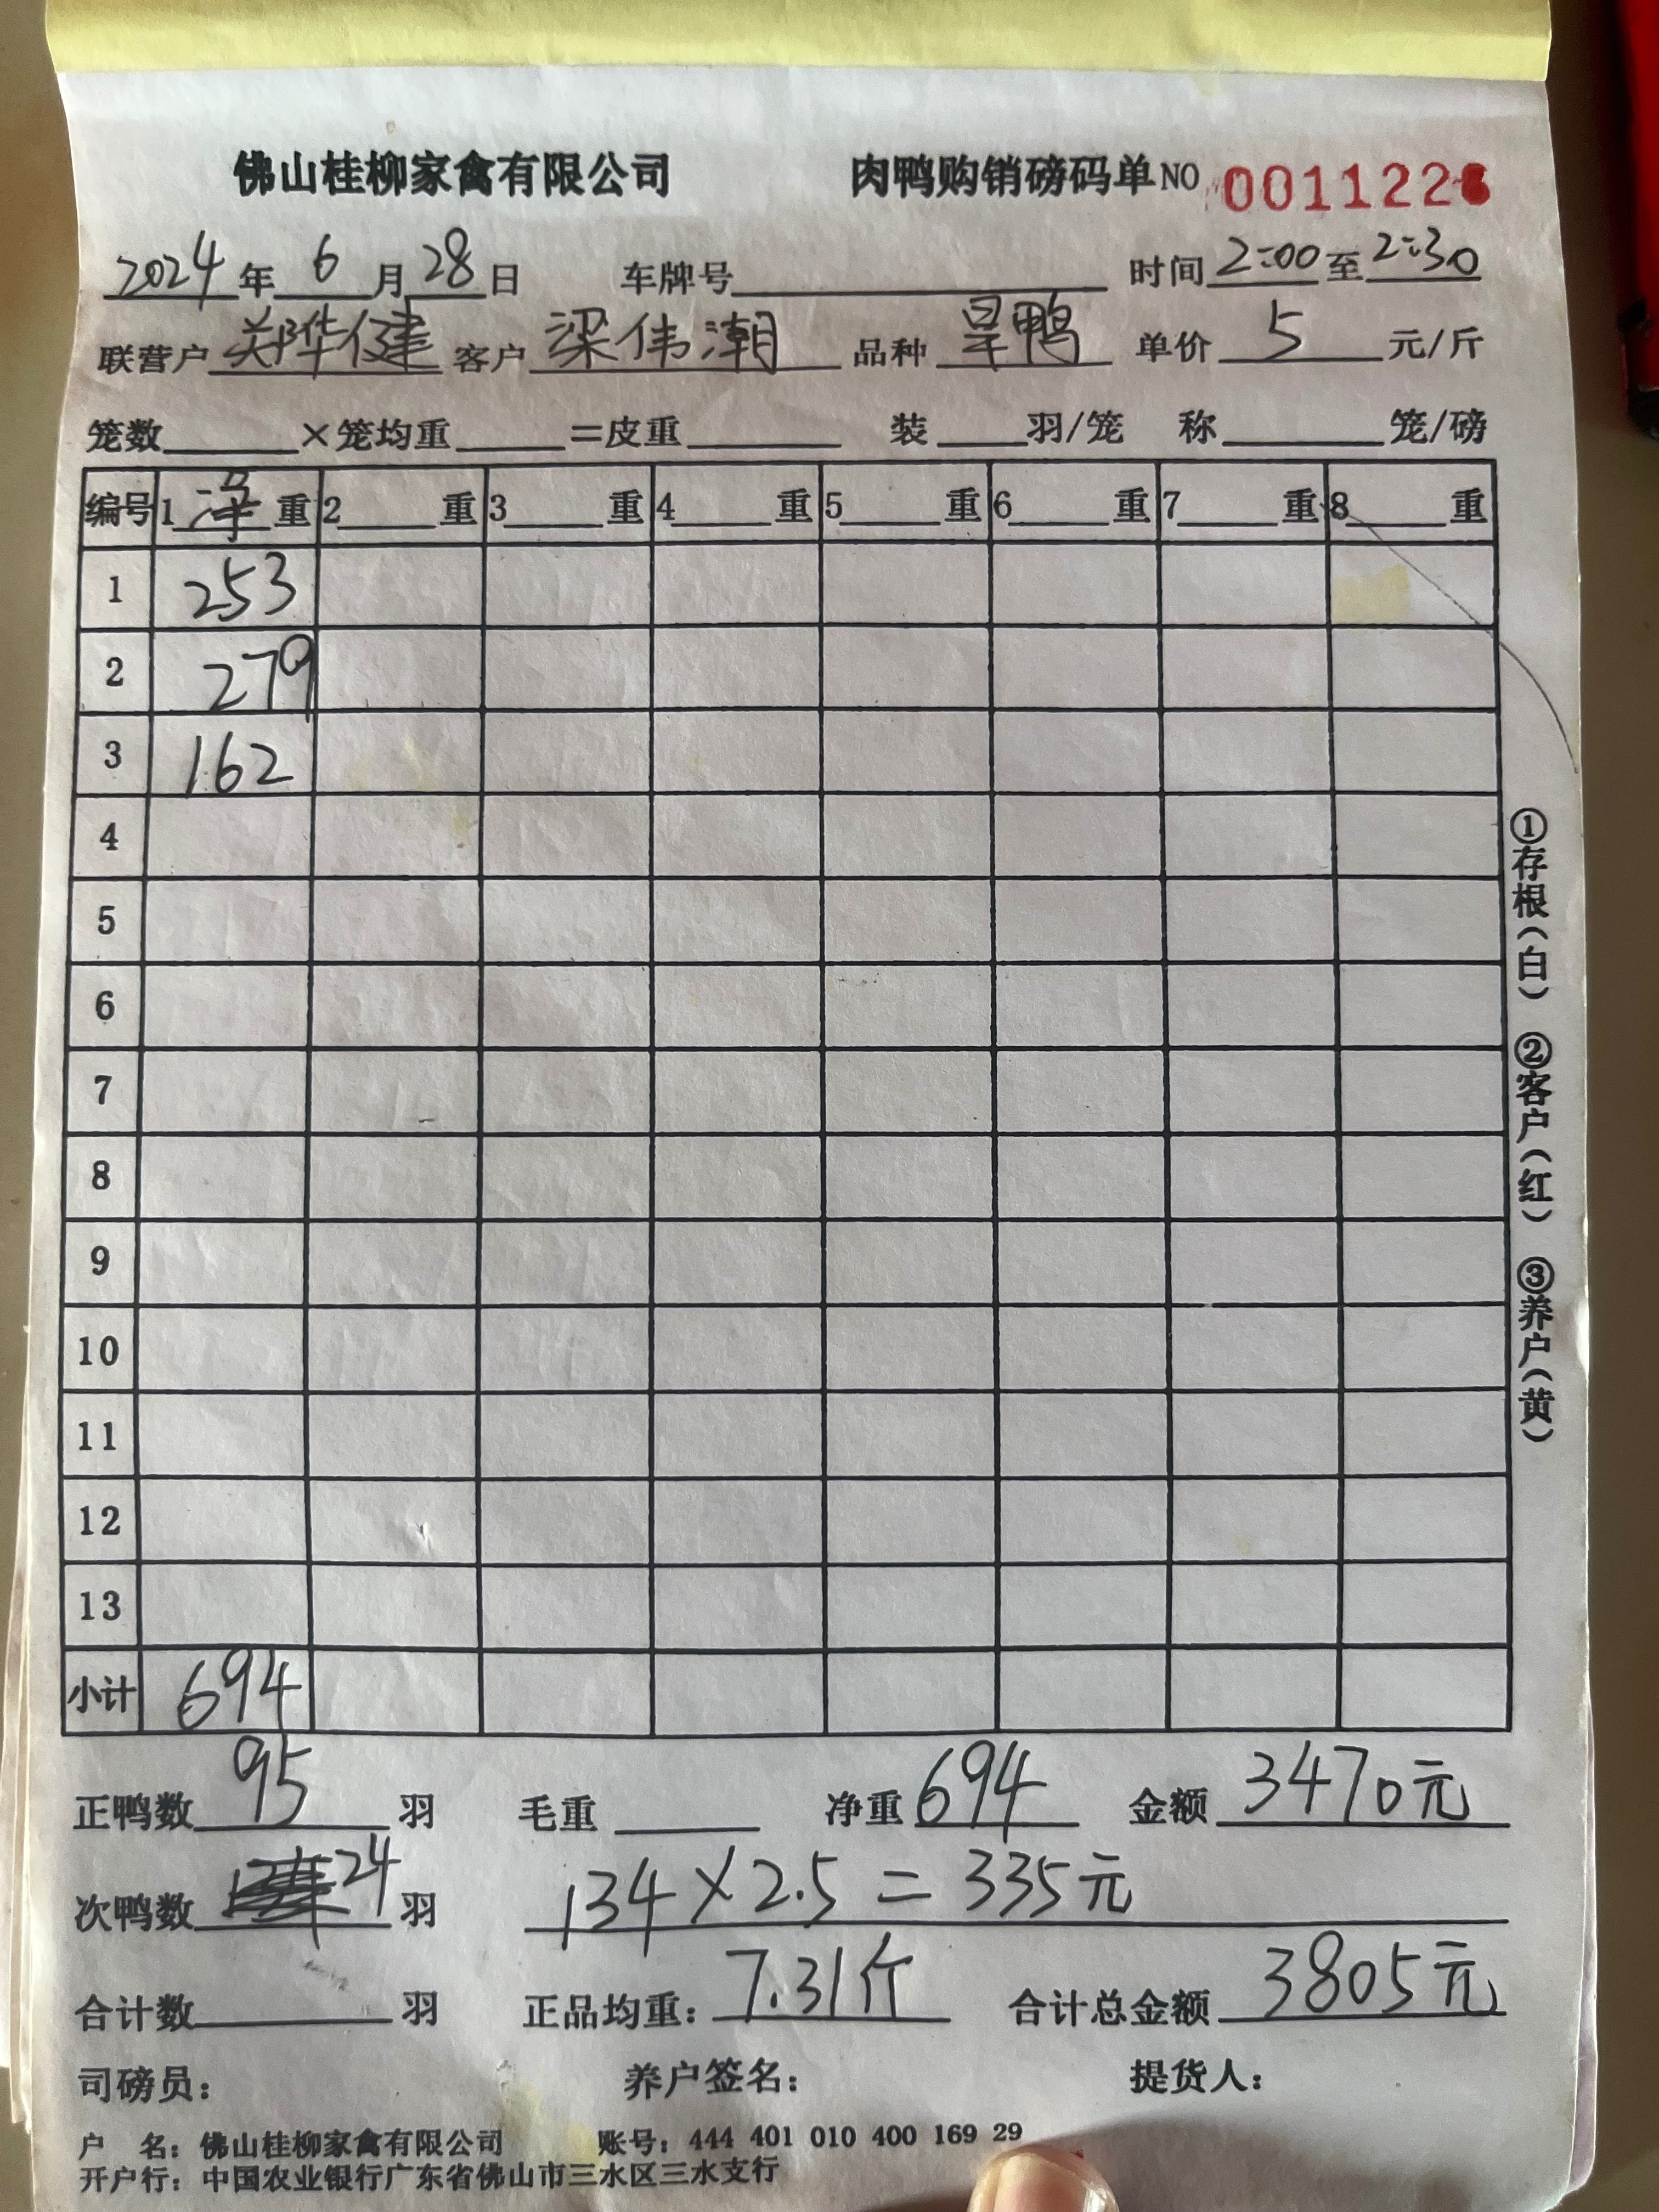 佛山桂柳家禽有限公司 肉鸭购销磅码单NO 001122
2024年6月28日 车牌号 时间2:00至2:30
联营户 郑晔健 客户 梁伟潮 品种 旱鸭 单价 5 元/斤
笼数 ×笼均重 =皮重 装 羽/笼 称 笼/磅
编号 1净重 2 重 3 重 4 重 5 重 6 重 7 重 8 重
1 253
2 279
3 162
4
5
6
7
8
9
10
11
12
13
小计 694
正鸭数 95 羽 毛重 净重 694 金额 3470元
次鸭数 24 羽 134×2.5=335元
合计数 羽 正品均重: 7.31斤 合计总金额 3805元
司磅员: 养户签名: 提货人:
户 名: 佛山桂柳家禽有限公司 账号: 444 401 010 400 169 29
开户行: 中国农业银行广东省佛山市三水区三水支行
①存根(白) ②客户(红) ③养户(黄)